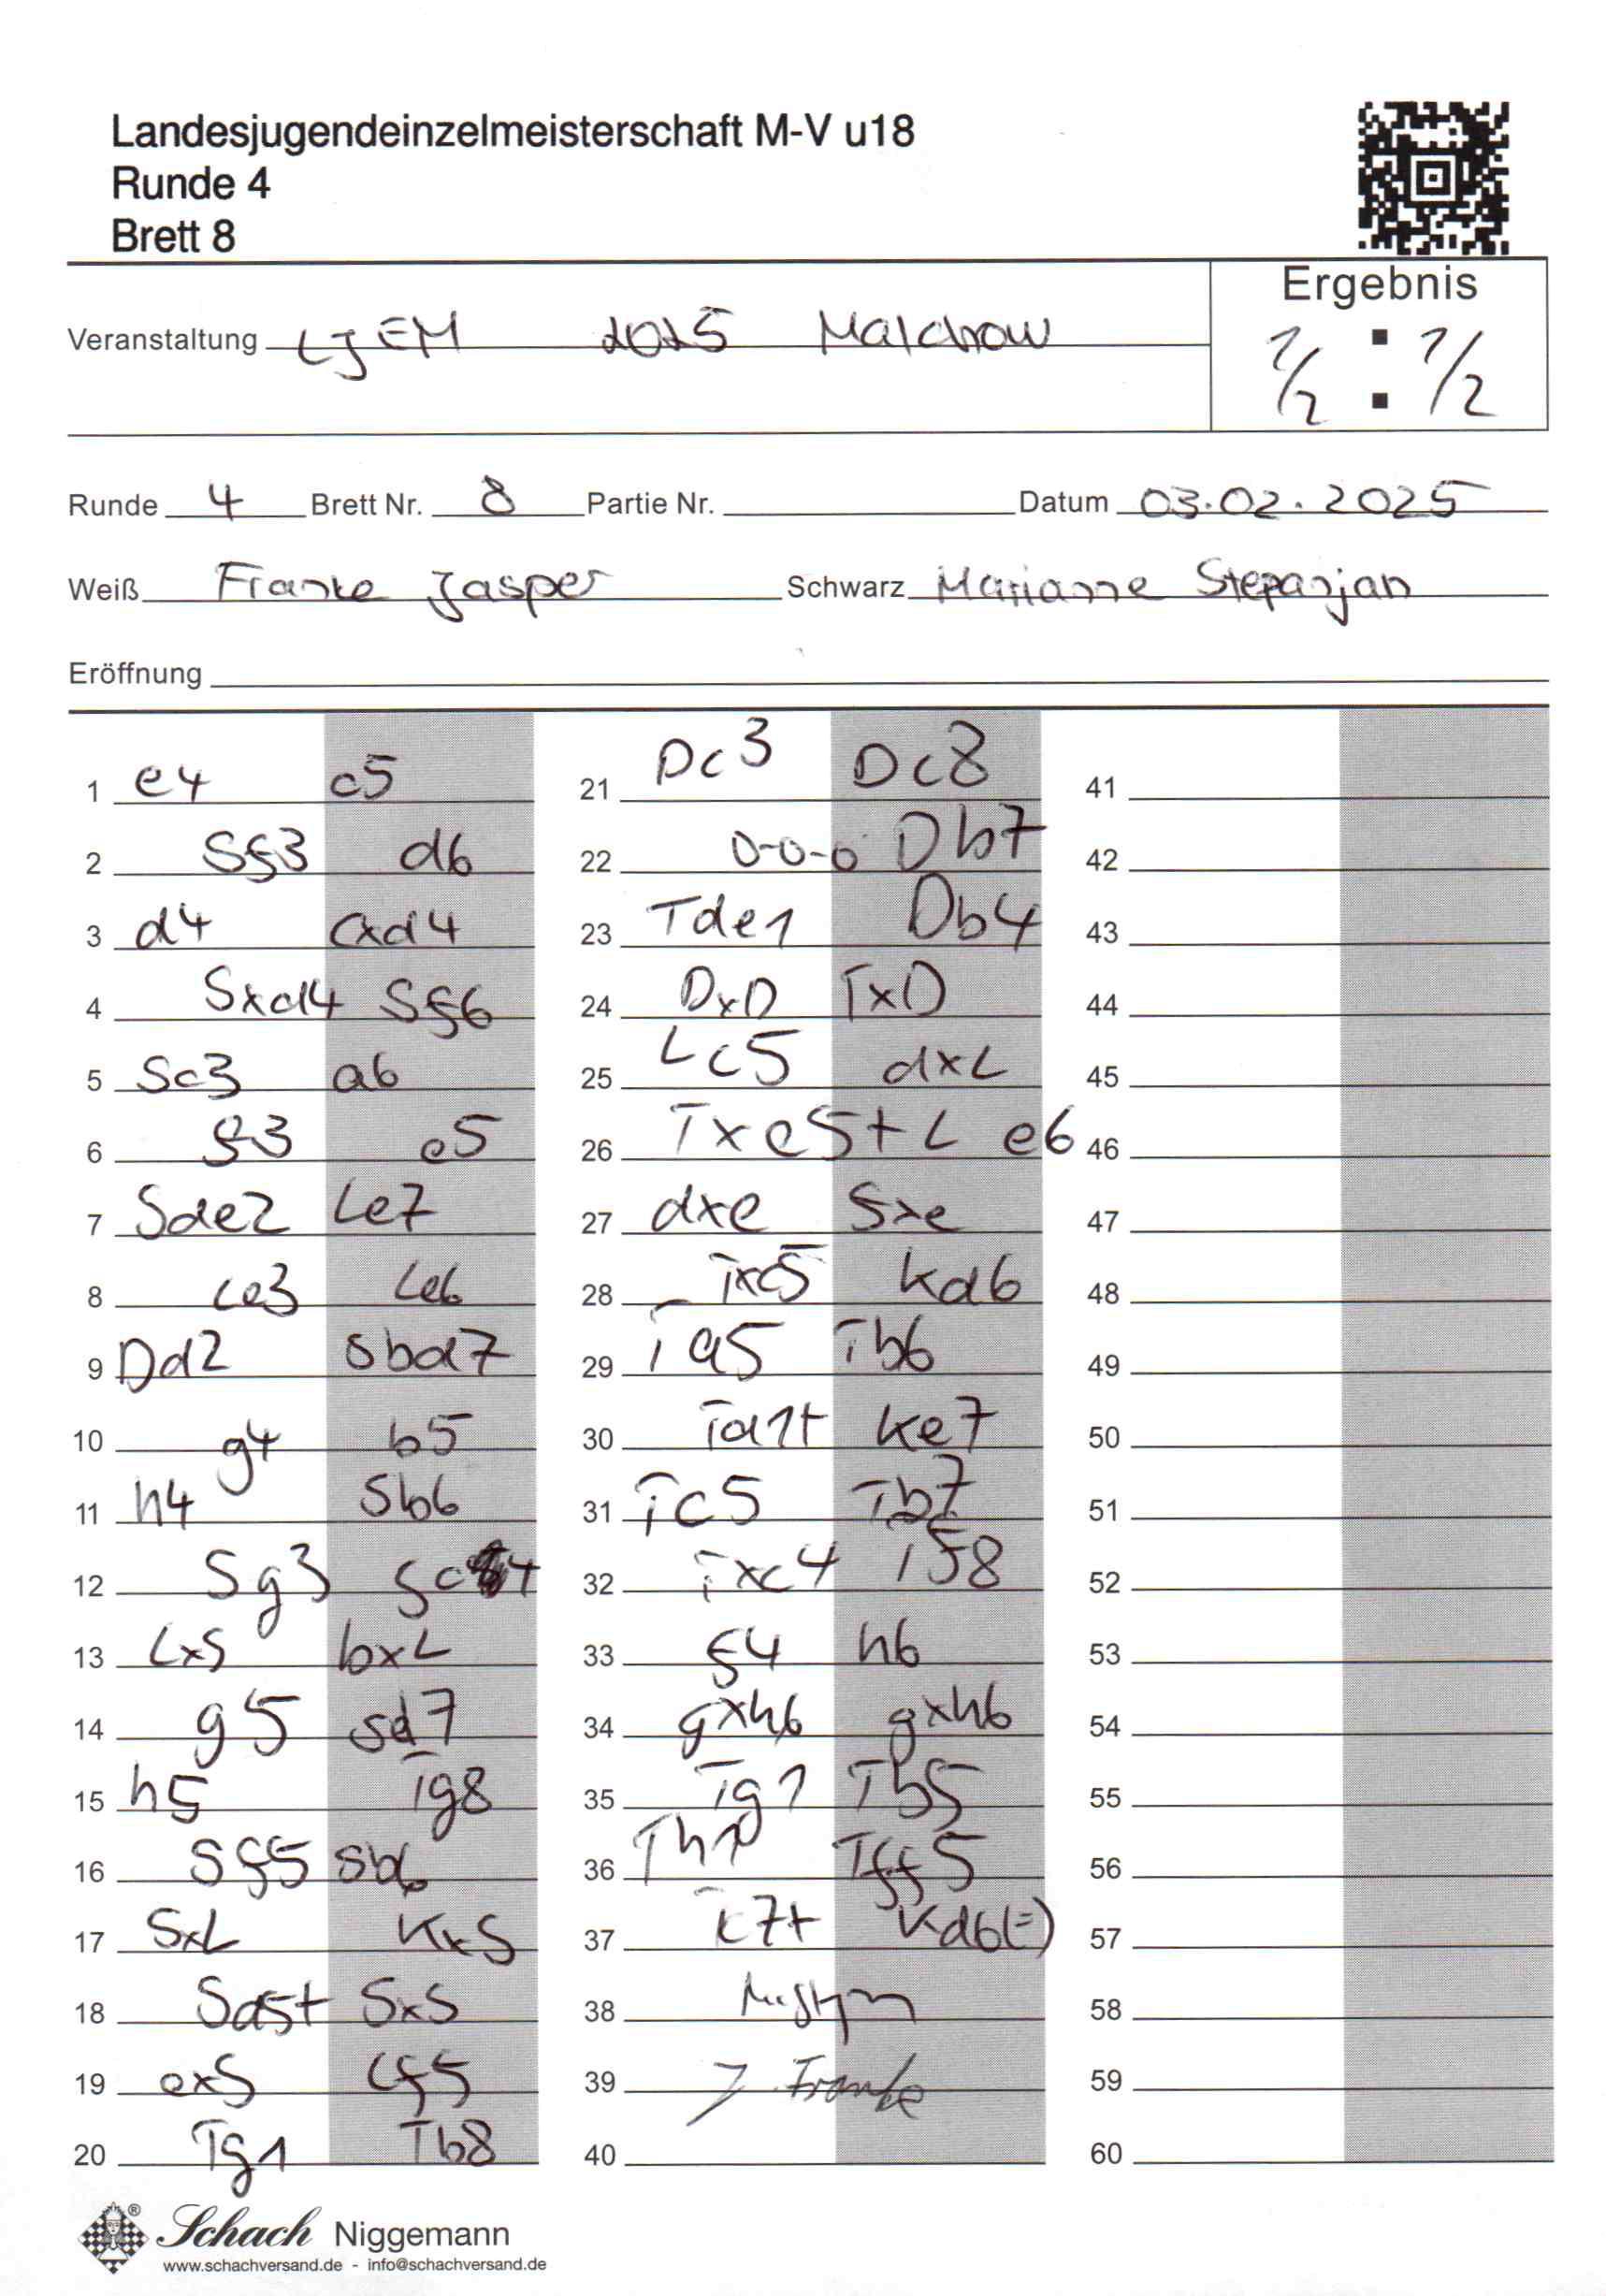 Landesjugendeinzelmeisterschaft M-V u18
Runde 4
Brett 8
Ergebnis
Veranstaltung LJEM 2025 Malchow
1/2 : 1/2
Runde 4 Brett Nr. 8 Partie Nr. Datum 03.02.2025
Weiß Franke Jasper Schwarz Marianne Stepanjan
Eröffnung
1 e4 c5
2 Sf3 d6
3 d4 cxd4
4 Sxd4 Sf6
5 Sc3 a6
6 f3 e5
7 Sde2 Le7
8 Le3 Le6
9 Dd2 Sbd7
10 g4 b5
11 h4 Sb6
12 Sg3 Sc4
13 LxS bxL
14 g5 Sd7
15 h5 Tg8
16 Sf5 Sb6
17 SxL KxS
18 Sd5+ SxS
19 exS Lf5
20 Tg1 Tb8
21 Dc3 Dc8
22 0-0-0 Db7
23 Tde1 Db4
24 DxD TxD
25 Lc5 dxL
26 Txe5+ Le6
27 dxe Sxe
28 Txc5 Kd6
29 Ta5 Tb6
30 Td1+ Ke7
31 Tc5 Tb7
32 Txc4 Tf8
33 f4 h6
34 gxh6 gxh6
35 Tg1 Tb5
36 Th1 Tff5
37 Tc7+ Kd6(=)
38
39 J. Franke
40
41
42
43
44
45
46
47
48
49
50
51
52
53
54
55
56
57
58
59
60
Schach Niggemann
www.schachversand.de - info@schachversand.de